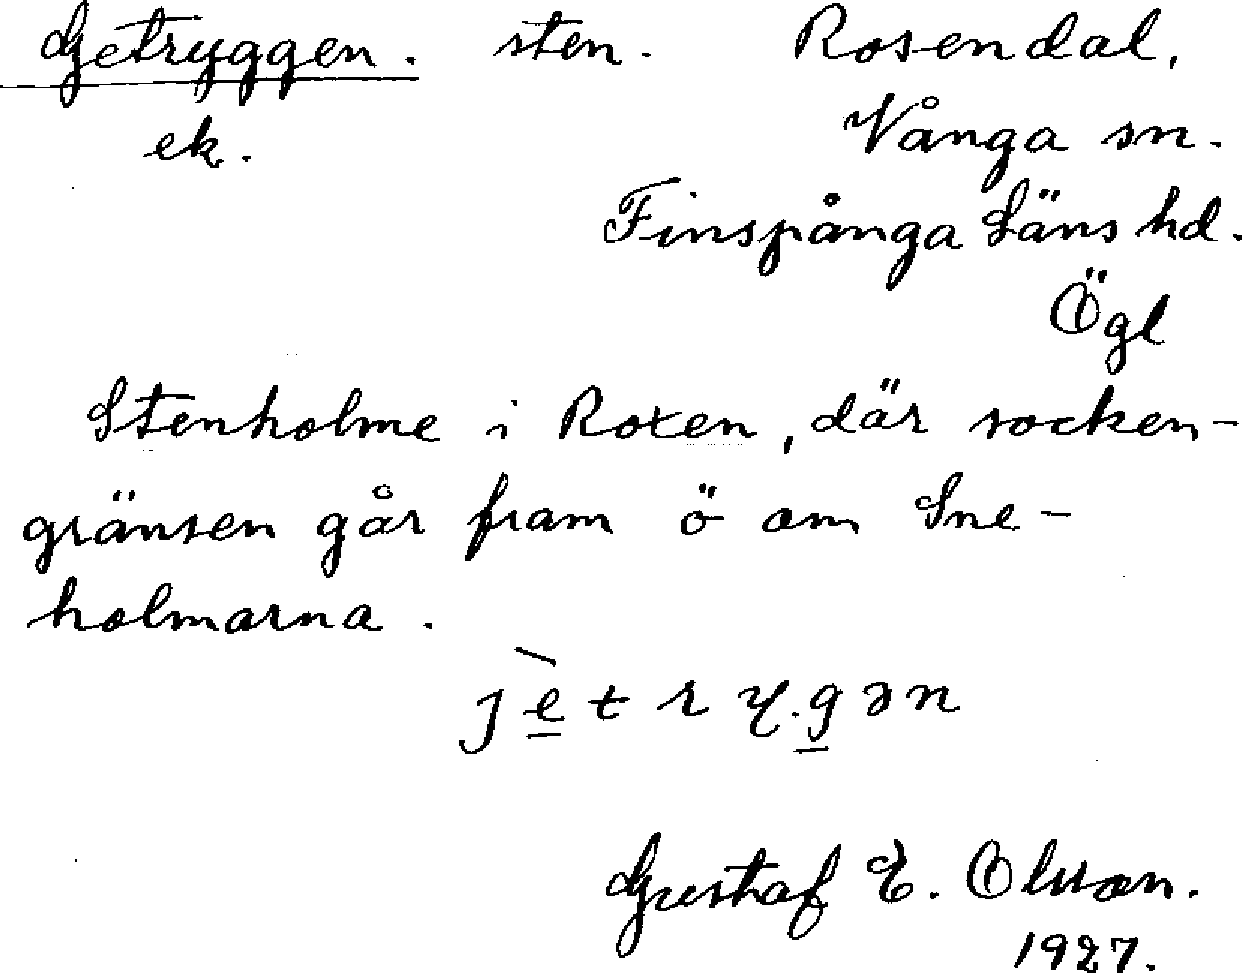 Getryggen. sten. Rosendal,
ek. Vånga sn.
Finspånga Läns hd.
Ögl
Stenholme i Roxen, där socken-
gränsen går fram ö om Sne-
holmarna.
j è t r y. g ə n
Gustaf E. Olsson.
1927.